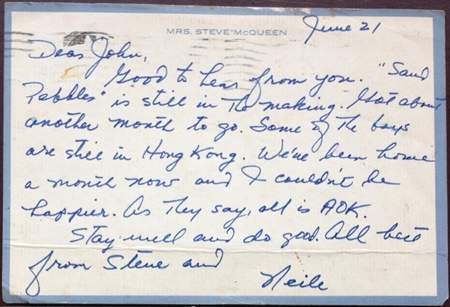 MRS. STEVE McQUEEN
June 21
Dear John,
Good to hear from you. "Sand
Pebbles" is still in the making. Got about
another month to go. Some of the boys
are still in Hong Kong. We've been home
a month now and I couldn't be
happier. As they say, all is AOK.
Stay well and do good. All best
from Steve and
Neile